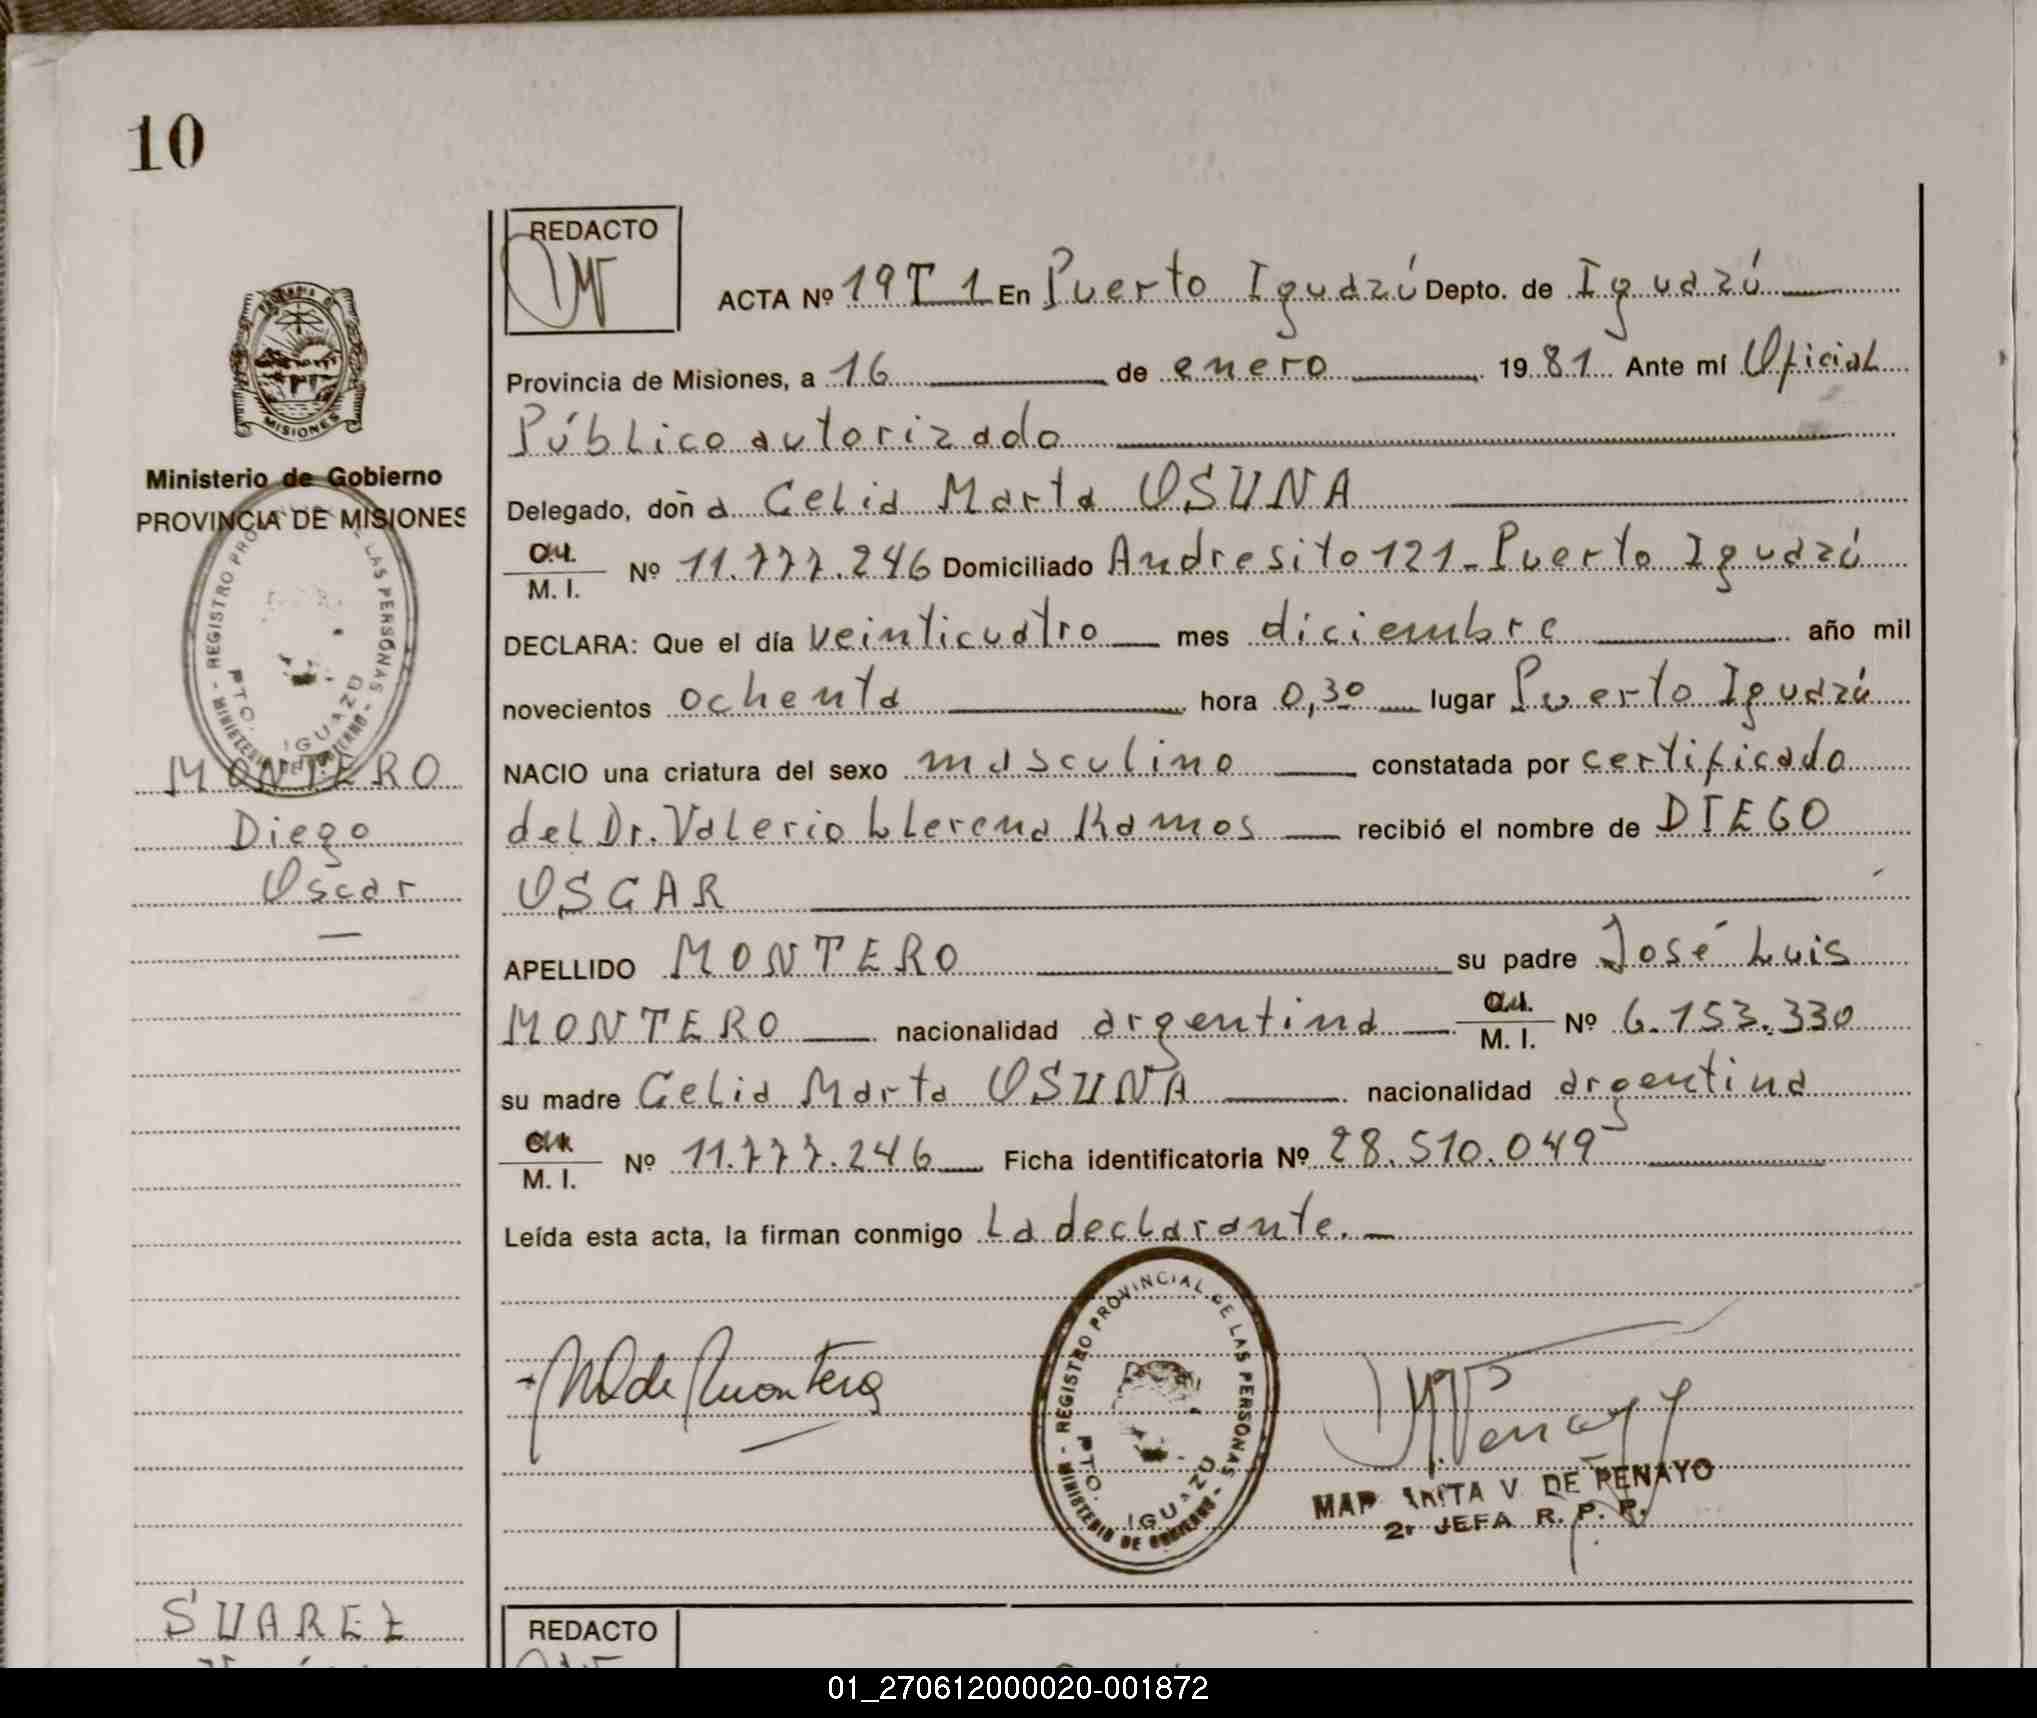 10
REDACTO
ACTA Nº 19 T 1 En Puerto Iguazú Depto. de Iguazú
Provincia de Misiones, a 16 de enero 1981 Ante mí Oficial
Público autorizado
Delegado, doña Celia Marta OSUNA
M. I. Nº 11.777.246 Domiciliado Andresito 121 - Puerto Iguazú
DECLARA: Que el día veinticuatro mes diciembre año mil
novecientos ochenta hora 0,30 lugar Puerto Iguazú
NACIO una criatura del sexo masculino constatada por certificado
del Dr. Valerio Llerena Ramos recibió el nombre de DIEGO
OSCAR
APELLIDO MONTERO su padre José Luis
MONTERO nacionalidad argentina M. I. Nº 6.153.330
su madre Celia Marta OSUNA nacionalidad argentina
M. I. Nº 11.777.246 Ficha identificatoria Nº 28.510.049
Leída esta acta, la firman conmigo la declarante.
de Montero
REGISTRO PROVINCIAL DE LAS PERSONAS
PTO. IGUAZU
MINISTERIO DE GOBIERNO
V. DE PENAYO
JEFA R. P. P.
MISIONES
Ministerio de Gobierno
PROVINCIA DE MISIONES
REGISTRO PRO LAS PERSONAS
PTO. IGUAZU
MINISTERIO DE GOBIERNO
MONTERO
Diego
Oscar
SUAREZ
REDACTO
01_270612000020-001872